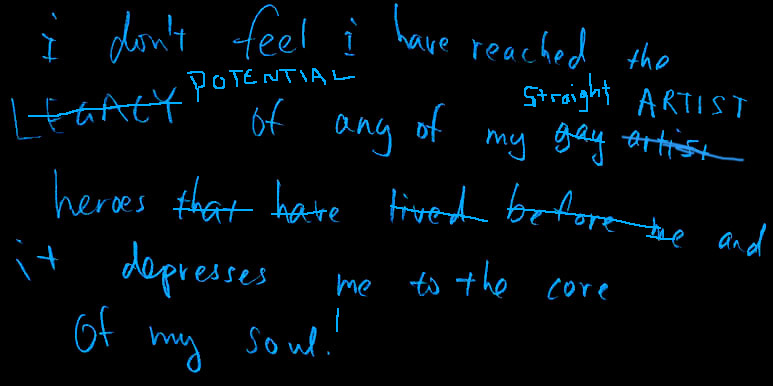 i don't feel i have reached the
LEGACY POTENTIAL of any of my gay straight artist ARTIST
heroes that have lived before me and
it depresses me to the core
of my soul.!